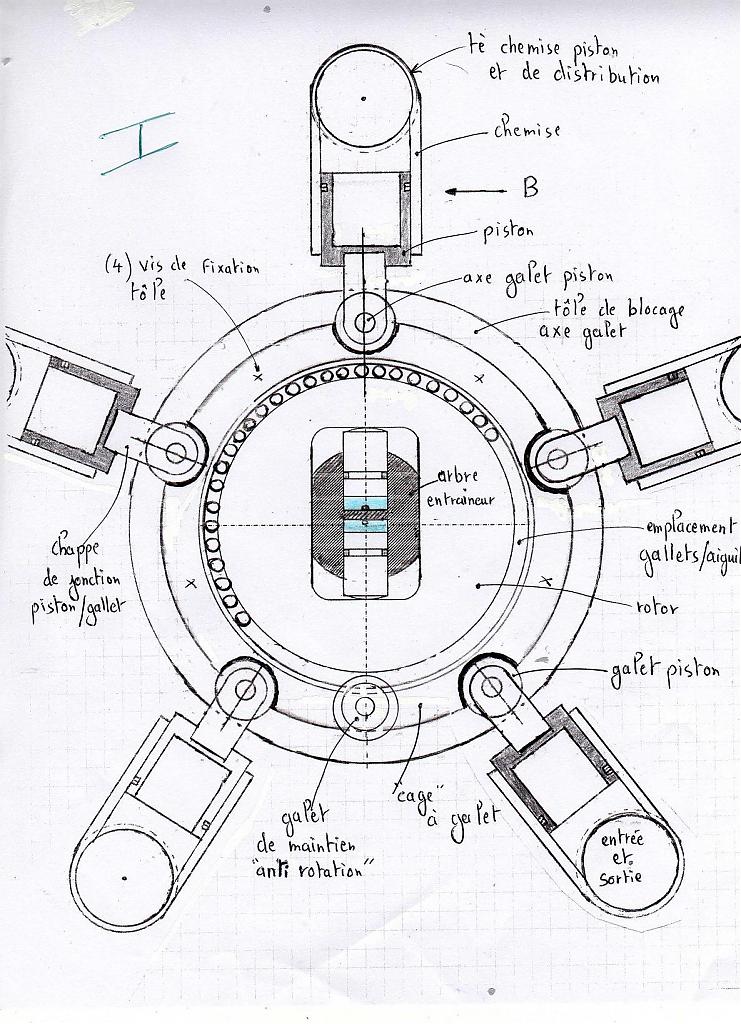 tè chemise piston
et de distribution
I
chemise
B
piston
(4) vis de fixation
tôle
axe galet piston
tôle de blocage
axe galet
arbre
entraineur
emplacement
gallets/aiguil
chappe
de jonction
piston/gallet
rotor
galet piston
"cage"
à galet
galet
de maintien
"anti rotation"
entrée
et
sortie